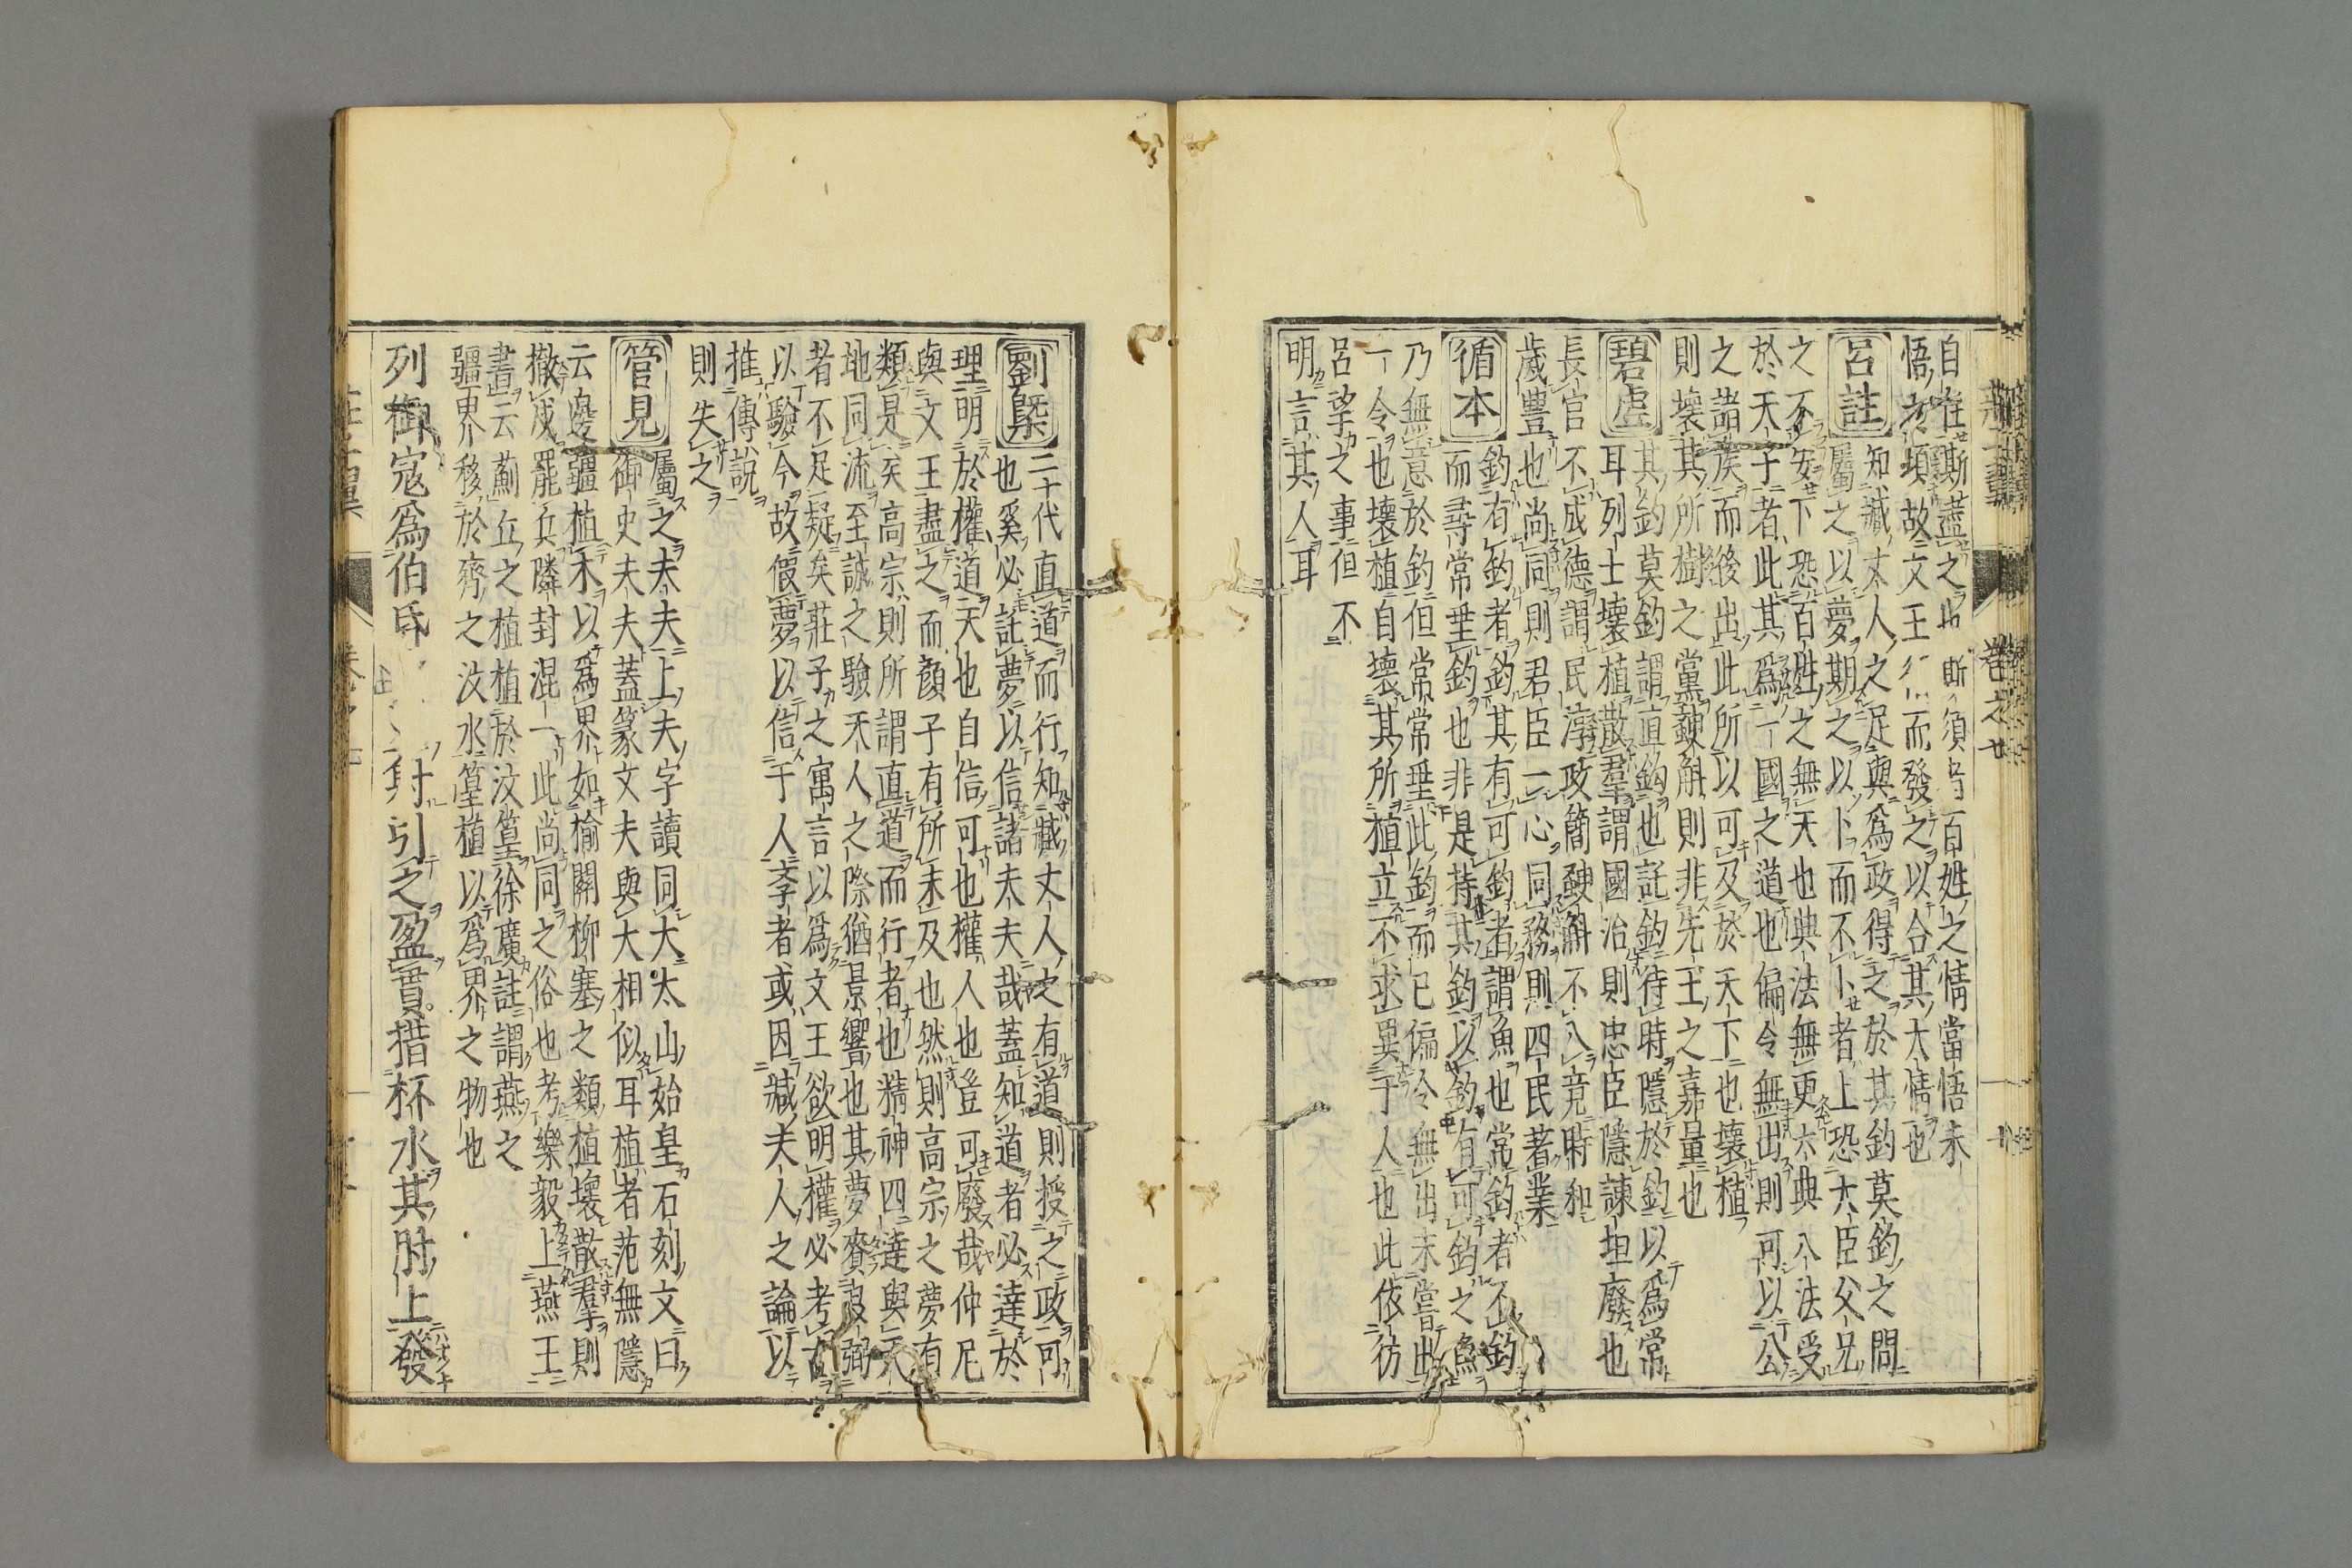 自在斯盡之也斯須者百姓之情當悟未
悟之頃故文王循而發之以合其大情也
呂註
知臧丈人之足與爲政得之於其釣莫釣之間
屬之以夢期之以卜而不卜者上恐大臣父兄
之不安下恐百姓之無天也典法無更六典八法受
於天子者此其爲一國之道也偏令無出則可以公
之諸侯而後出此所以可及於天下也壞植
則壞其所樹之黨𧣾斛則非先王之嘉量也
碧虛
其釣莫釣謂直鈎也託釣待時隱於釣以爲常
耳列士壞植散羣謂國治則忠臣隱諫坦廢也
長官不成德謂民淳政簡𧣾斛不入竟時和
歲豐也尚同則君臣一心同務則四民著業
循本
釣有釣者釣其有可釣者謂魚也常釣者不釣
而尋常垂釣也非是持其釣以釣有可釣之魚
乃無意於釣但常常垂此釣而已偏令無出未嘗出
一令也壞植自壞其所植立不求異于人也此依彷
呂望之事但不
明言其人耳
劉槩
二十代直道而行知臧丈人之有道則授之政可
也奚必託夢以信諸夫夫哉蓋知道者必達於
理明於權道天也自信可也權人也豈可廢哉仲尼
與文王盡之而顏子有所未及也然則高宗之夢有
類是矣高宗則所謂直道而行者也精神四達與天
地同流至誠之驗天人之際猶景響也其夢賚良弼
者不足疑矣莊子之寓言以爲文王欲明權必考古
以驗今故假夢以信于人李者或因臧夫人之論以
推傳說
則失之
管見
屬之夫夫上夫字讀同大太山始皇石刻文曰
御史夫夫蓋篆文夫與大相似耳植者范無隱
云邊疆植木以爲界如榆關柳塞之類植壞散羣則
撤戍罷兵隣封混一此尚同之俗也考樂毅上燕王
書云薊丘之植植於汶篁徐廣註謂燕之
疆界移於齊之汶水篁植以爲界之物也
列御寇爲伯昏射引之盈貫措杯水其肘上發